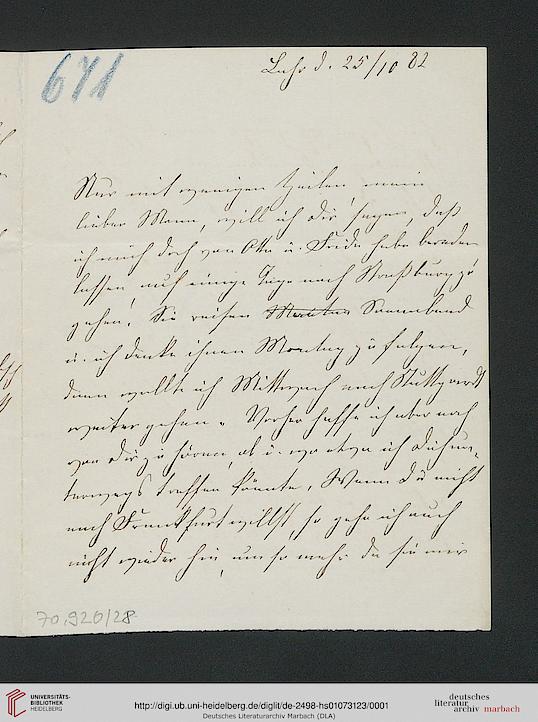 671
Lahr d. 25/10 82
Nur mit wenigen Zeilen mein
lieber Mann, will ich dir sagen, daß
ich mich doch von Otto u. Frida habe bereden
lassen auf einige Tage nach Straßburg zu
gehen! Sie reisen Sonnabend
u. ich denke ihnen Montag zu folgen,
dann wollte ich Mittwoch nach Stuttgardt
weiter gehen. Vorher hoffe ich aber noch
von Dir zu hören, ob u. wo etwa ich Dich un-
terwegs treffen könnte. Wenn du nicht
nach Frankfurt willst, so gehe ich auch
nicht wieder hin, um so mehr da sie mir
70.926/28
UNIVERSITÄTS-
BIBLIOTHEK
HEIDELBERG
http://digi.ub.uni-heidelberg.de/diglit/de-2498-hs01073123/0001
Deutsches Literaturarchiv Marbach (DLA)
deutsches
literatur
archiv marbach